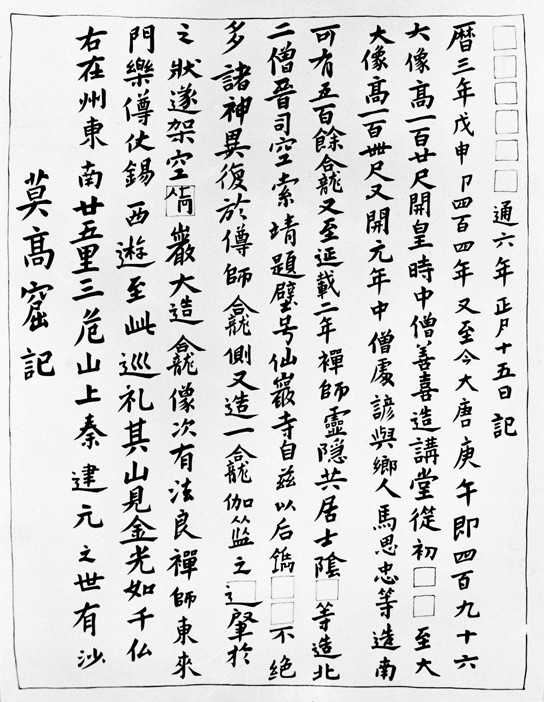 莫高窟記
右在州東南廿五里三危山上秦建元之世有沙
門樂僔仗錫西遊至此巡礼其山見金光如千仏
之狀遂架空巖大造龕像次有法良禪師東來
多諸神異復於僔師龕側又造一龕伽藍之肇於
二僧晉司空索靖題壁号仙巖寺自茲以后鐫□□不絕
可有五百餘龕又至延載二年禪師靈隱共居士陰□等造北
大像高一百卌尺又開元年中僧處諺與鄉人馬思忠等造南
大像高一百廿尺開皇時中僧善喜造講堂從初□□至大
曆三年戊申卩四百四年又至今大唐庚午即四百九十六
□□□□□□通六年正月十五日記